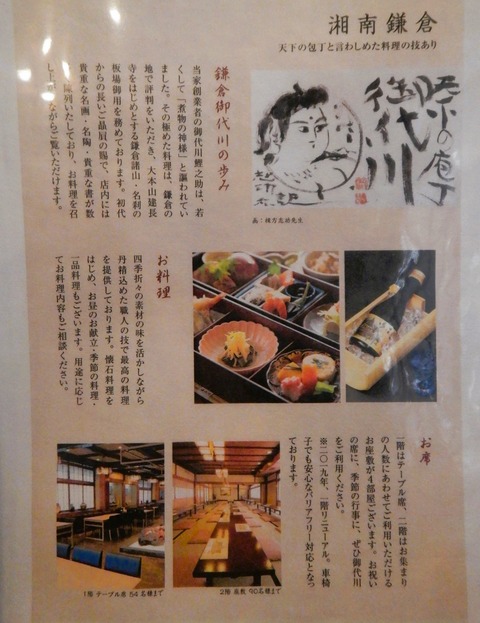 湘南鎌倉
天下の包丁と言わしめた料理の技あり
御代川
画:棟方志功先生
鎌倉御代川の歩み
当家創業者の御代川鯉之助は、若
くして「煮物の神様」と謳われてい
ました。その極めた料理は、鎌倉の
地で評判をいただき、大本山建長
寺をはじめとする鎌倉諸山・名刹の
板場御用を務めております。初代
からの長いご贔屓の賜で、店内には
貴重な名画・名陶・貴重な書が数
陳列いたしており、お料理を召
ながらご覧いただけます。
お料理
四季折々の素材の味を活かしながら
丹精込めた職人の技で最高の料理
を提供しております。懐石料理を
はじめ、お昼のお献立・季節の料理・
一品料理もございます。用途に応じ
てお料理内容もご相談ください。
お席
一階はテーブル席、二階はお集まり
の人数にあわせてご利用いただける
お座敷が4部屋ございます。お祝い
の席に、季節の行事に、ぜひ御代川
をご利用ください。
※二〇一九年、一階リニューアル。車椅
子でも安心なバリアフリー対応となっ
ております。
1階 テーブル席 64名様まで
2階 座敷 90名様まで